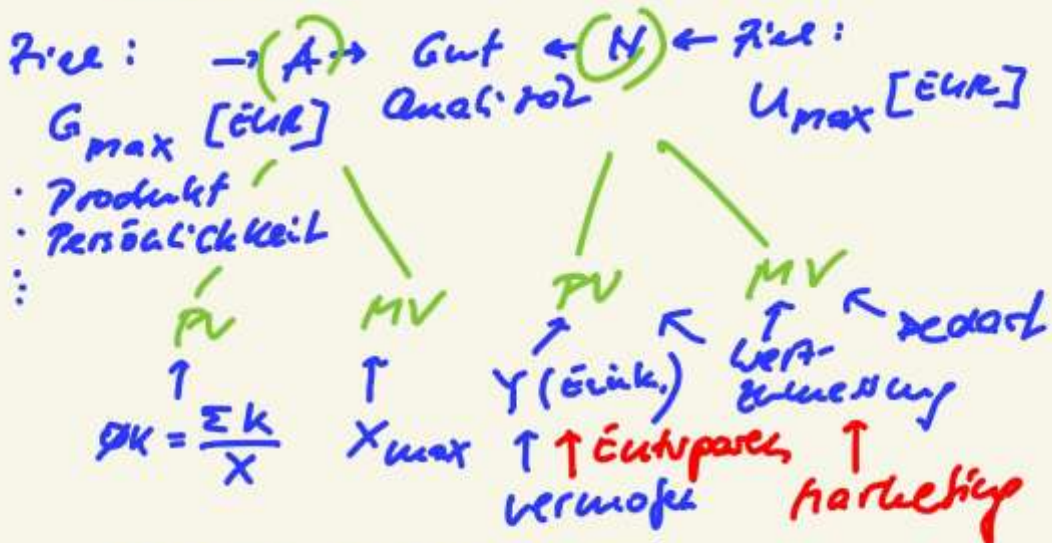 Ziel: → A → Gut ← N ← Ziel:
G max [EUR] Qualität U max [EUR]
· Produkt
· Persönlichkeit
⋮
PV MV PV MV
Y (Eink.) Wert- Bedarf
zumessung
ØK = ΣK / X X max Entsparen
Vermögen Marketing